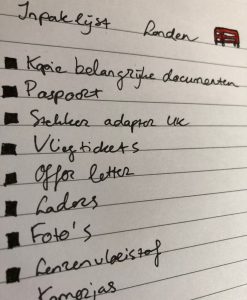 Inpaklijst Londen
Kopie belangrijke documenten
Paspoort
Stekker adaptor UK
Vliegtickets
Offer letter
Laders
Foto's
Lenzenvloeistof
Kamerjas